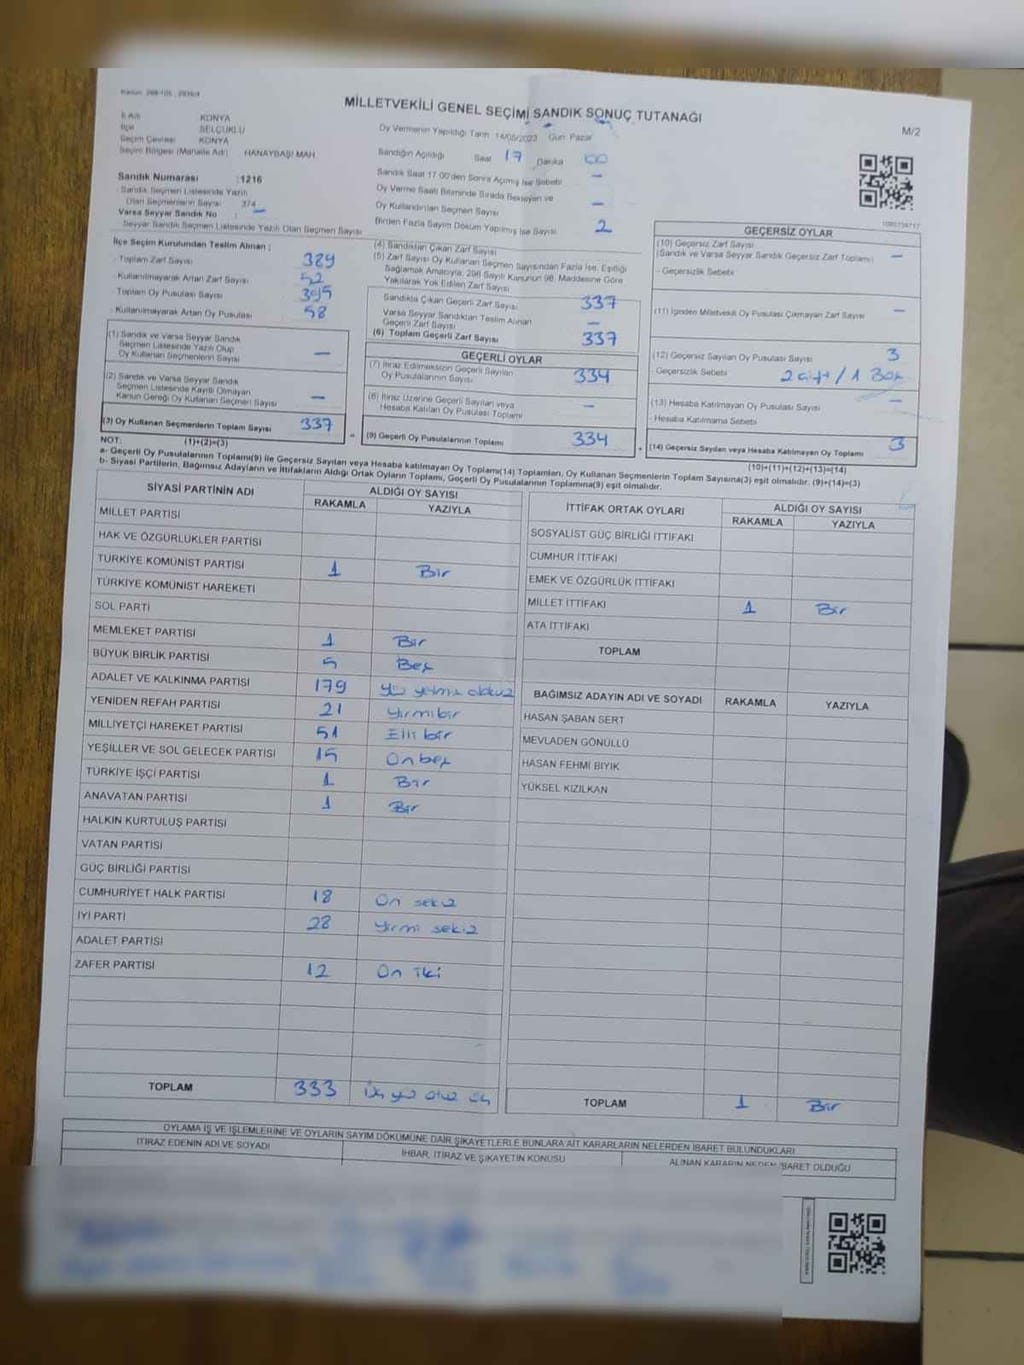 MİLLETVEKİLİ GENEL SEÇİMİ SANDIK SONUÇ TUTANAĞI
M/2
İl Adı KONYA
İlçe SELÇUKLU
Seçim Çevresi KONYA
Seçim Bölgesi (Mahalle Adı) HANAYBAŞI MAH
Sandık Numarası :1216
Sandık Seçmen Listesinde Yazılı
Olan Seçmenlerin Sayısı 374
Varsa Seyyar Sandık No : -
Seyyar Sandık Seçmen Listesinde Yazılı Olan Seçmen Sayısı
Oy Vermenin Yapıldığı Tarih 14/05/2023 Gün Pazar
Sandığın Açıldığı Saat 17 Dakika 00
Sandık Saat 17.00'den Sonra Açılmış İse Sebebi -
Oy Verme Saati Bitiminde Sırada Bekleyen ve
Oy Kullandırılan Seçmen Sayısı -
Birden Fazla Sayım Döküm Yapılmış İse Sayısı 2
İlçe Seçim Kurulundan Teslim Alınan ;
- Toplam Zarf Sayısı 389
- Kullanılmayarak Artan Zarf Sayısı 52
- Toplam Oy Pusulası Sayısı 395
- Kullanılmayarak Artan Oy Pusulası 58
(1) Sandık ve Varsa Seyyar Sandık
Seçmen Listesinde Yazılı Olup
Oy Kullanan Seçmenlerin Sayısı -
(2) Sandık ve Varsa Seyyar Sandık
Seçmen Listesinde Kayıtlı Olmayan
Kanun Gereği Oy Kullanan Seçmen Sayısı -
(3) Oy Kullanan Seçmenlerin Toplam Sayısı 337
(1)+(2)=(3)
(4) Sandıktan Çıkan Zarf Sayısı
(5) Zarf Sayısı Oy Kullanan Seçmen Sayısından Fazla İse, Eşitliği
Sağlamak Amacıyla, 298 Sayılı Kanunun 98. Maddesine Göre
Yakılarak Yok Edilen Zarf Sayısı
Sandıkta Çıkan Geçerli Zarf Sayısı 337
Varsa Seyyar Sandıktan Teslim Alınan
Geçerli Zarf Sayısı -
(6) Toplam Geçerli Zarf Sayısı 337
GEÇERLİ OYLAR
(7) İtiraz Edilmeksizin Geçerli Sayılan
Oy Pusulalarının Sayısı 334
(8) İtiraz Üzerine Geçerli Sayılan veya
Hesaba Katılan Oy Pusulaları Toplamı -
(9) Geçerli Oy Pusulalarının Toplamı 334
GEÇERSİZ OYLAR
(10) Geçersiz Zarf Sayısı
(Sandık ve Varsa Seyyar Sandık Geçersiz Zarf Toplamı) -
- Geçersizlik Sebebi
(11) İçinden Milletvekili Oy Pusulası Çıkmayan Zarf Sayısı -
(12) Geçersiz Sayılan Oy Pusulası Sayısı 3
Geçersizlik Sebebi 2 çift / 1 Boş
(13) Hesaba Katılmayan Oy Pusulası Sayısı -
- Hesaba Katılmama Sebebi
(14) Geçersiz Sayılan veya Hesaba Katılmayan Oy Toplamı 3
(10)+(11)+(12)+(13)=(14)
NOT:
a- Geçerli Oy Pusulalarının Toplamı(9) ile Geçersiz Sayılan veya Hesaba katılmayan Oy Toplamı(14) Toplamları, Oy Kullanan Seçmenlerin Toplam Sayısına(3) eşit olmalıdır. (9)+(14)=(3)
b- Siyasi Partilerin, Bağımsız Adayların ve İttifakların Aldığı Ortak Oyların Toplamı, Geçerli Oy Pusulalarının Toplamına(9) eşit olmalıdır.
SİYASİ PARTİNİN ADI ALDIĞI OY SAYISI
RAKAMLA YAZIYLA
MİLLET PARTİSİ
HAK VE ÖZGÜRLÜKLER PARTİSİ
TÜRKİYE KOMÜNİST PARTİSİ 1 Bir
TÜRKİYE KOMÜNİST HAREKETİ
SOL PARTİ
MEMLEKET PARTİSİ 1 Bir
BÜYÜK BİRLİK PARTİSİ 5 Beş
ADALET VE KALKINMA PARTİSİ 179 Yüz yetmiş dokuz
YENİDEN REFAH PARTİSİ 21 Yirmibir
MİLLİYETÇİ HAREKET PARTİSİ 51 Elli bir
YEŞİLLER VE SOL GELECEK PARTİSİ 15 Onbeş
TÜRKİYE İŞÇİ PARTİSİ 1 Bir
ANAVATAN PARTİSİ 1 Bir
HALKIN KURTULUŞ PARTİSİ
VATAN PARTİSİ
GÜÇ BİRLİĞİ PARTİSİ
CUMHURİYET HALK PARTİSİ 18 On sekiz
İYİ PARTİ 28 Yirmi sekiz
ADALET PARTİSİ
ZAFER PARTİSİ 12 On iki
TOPLAM 333 Üç yüz otuz üç
İTTİFAK ORTAK OYLARI ALDIĞI OY SAYISI
RAKAMLA YAZIYLA
SOSYALİST GÜÇ BİRLİĞİ İTTİFAKI
CUMHUR İTTİFAKI
EMEK VE ÖZGÜRLÜK İTTİFAKI
MİLLET İTTİFAKI 1 Bir
ATA İTTİFAKI
TOPLAM
BAĞIMSIZ ADAYIN ADI VE SOYADI RAKAMLA YAZIYLA
HASAN ŞABAN SERT
MEVLADEN GÖNÜLLÜ
HASAN FEHMİ BIYIK
YÜKSEL KIZILKAN
TOPLAM 1 Bir
OYLAMA İŞ VE İŞLEMLERİNE VE OYLARIN SAYIM DÖKÜMÜNE DAİR ŞİKAYETLERLE BUNLARA AİT KARARLARIN NELERDEN İBARET BULUNDUKLARI
İTİRAZ EDENİN ADI VE SOYADI İHBAR, İTİRAZ VE ŞİKAYETİN KONUSU ALINAN KARARIN NEDEN İBARET OLDUĞU